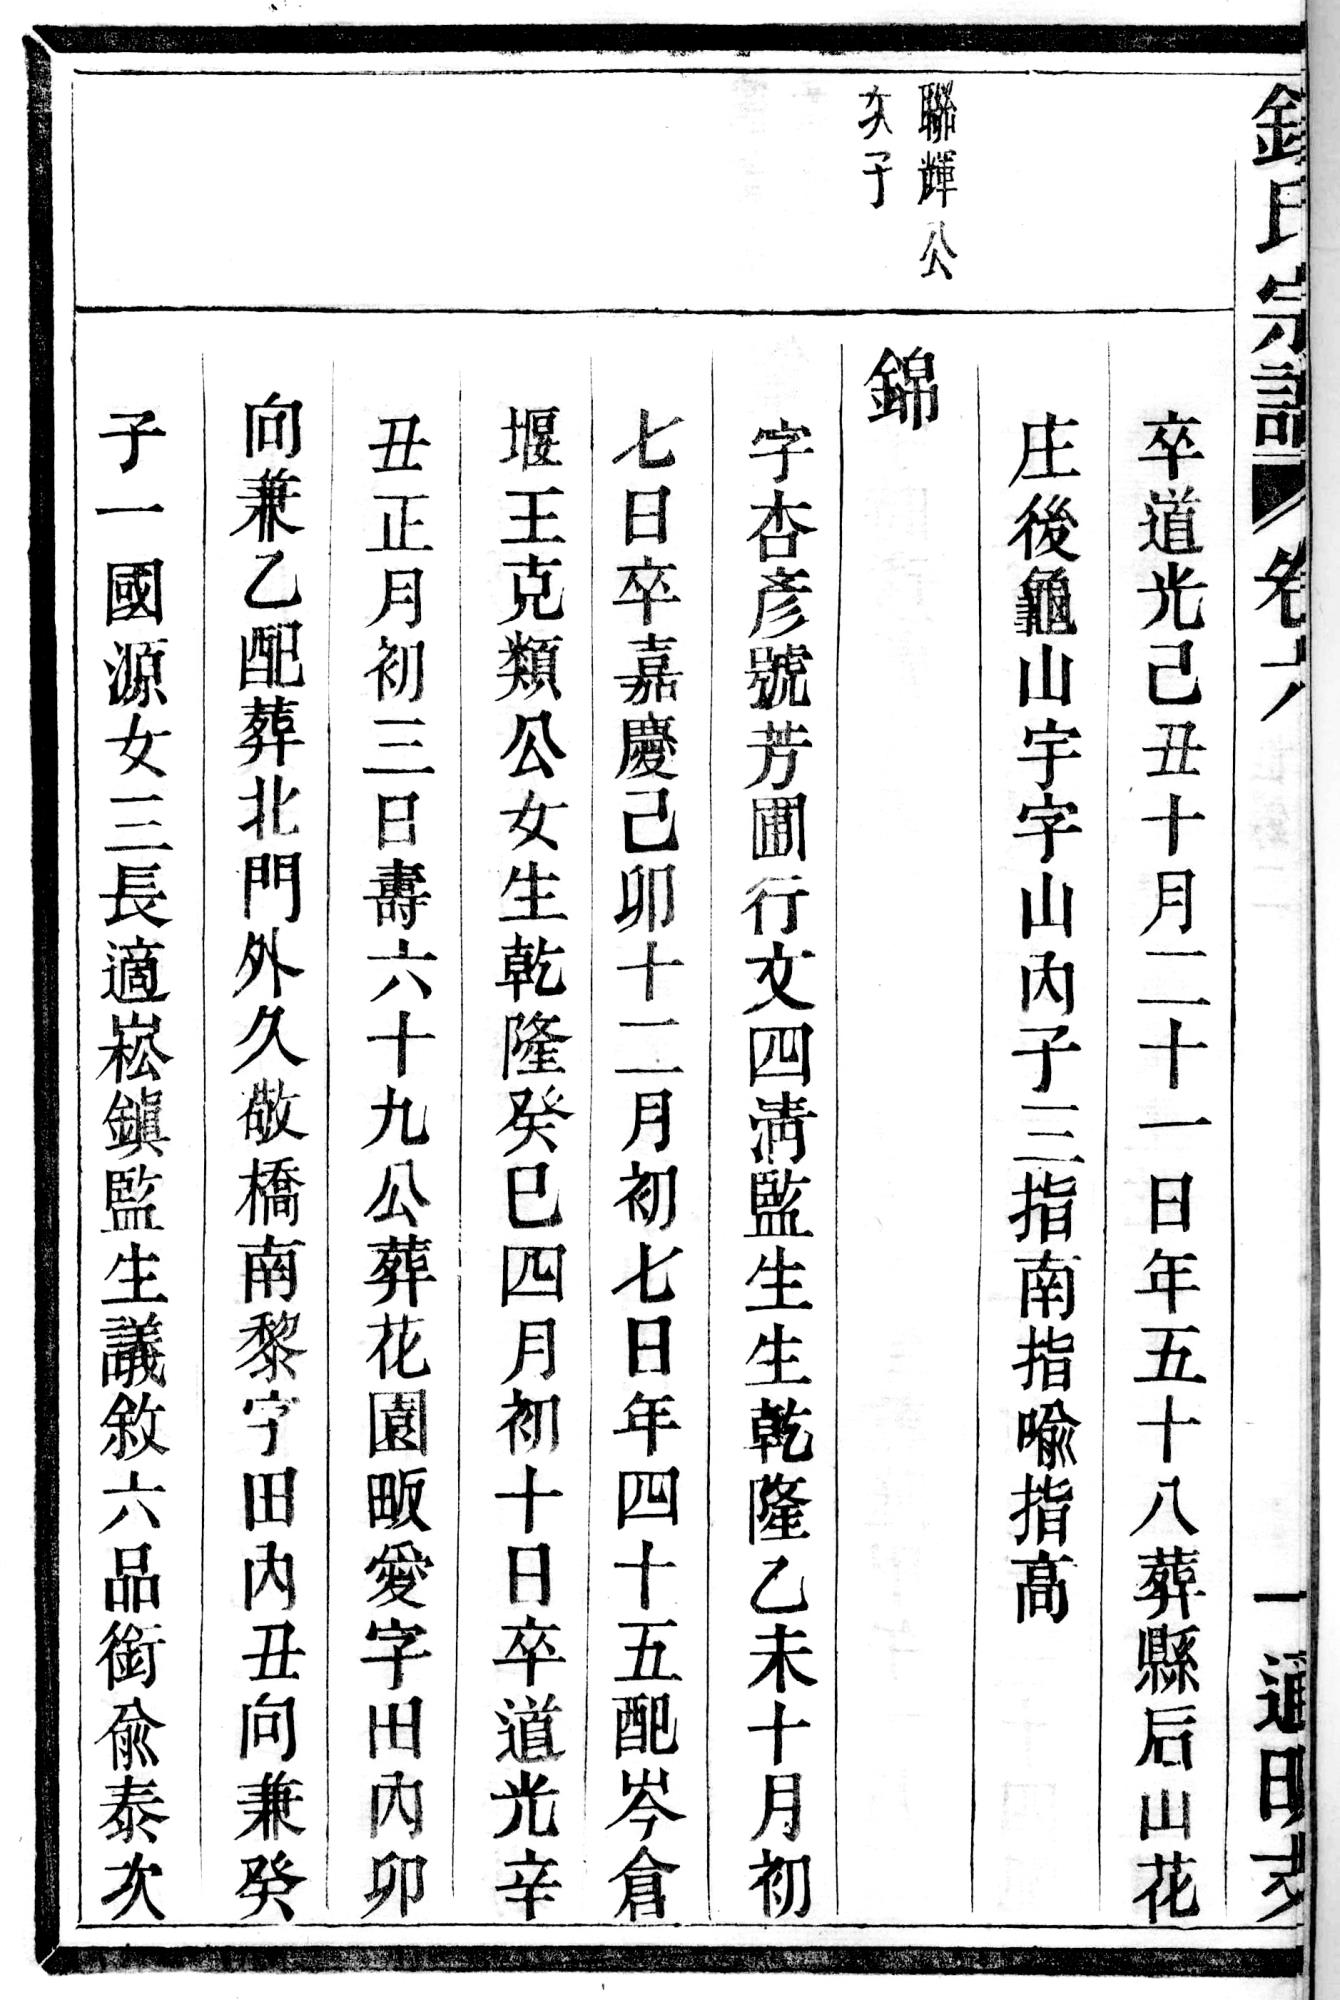 氏宗譜 卷六 一 通明支
卒道光己丑十月二十一日年五十八葬縣后山花
庄後龜山宇字山內子三指南指喻指高
聯輝公
次子
錦
字杏彥號芳圃行文四清監生生乾隆乙未十月初
七日卒嘉慶己卯十二月初七日年四十五配岑倉
堰王克類公女生乾隆癸巳四月初十日卒道光辛
丑正月初三日壽六十九公葬花園畈愛字田內卯
向兼乙配葬北門外久敬橋南黎字田內丑向兼癸
子一國源女三長適崧鎮監生議敘六品銜俞泰次